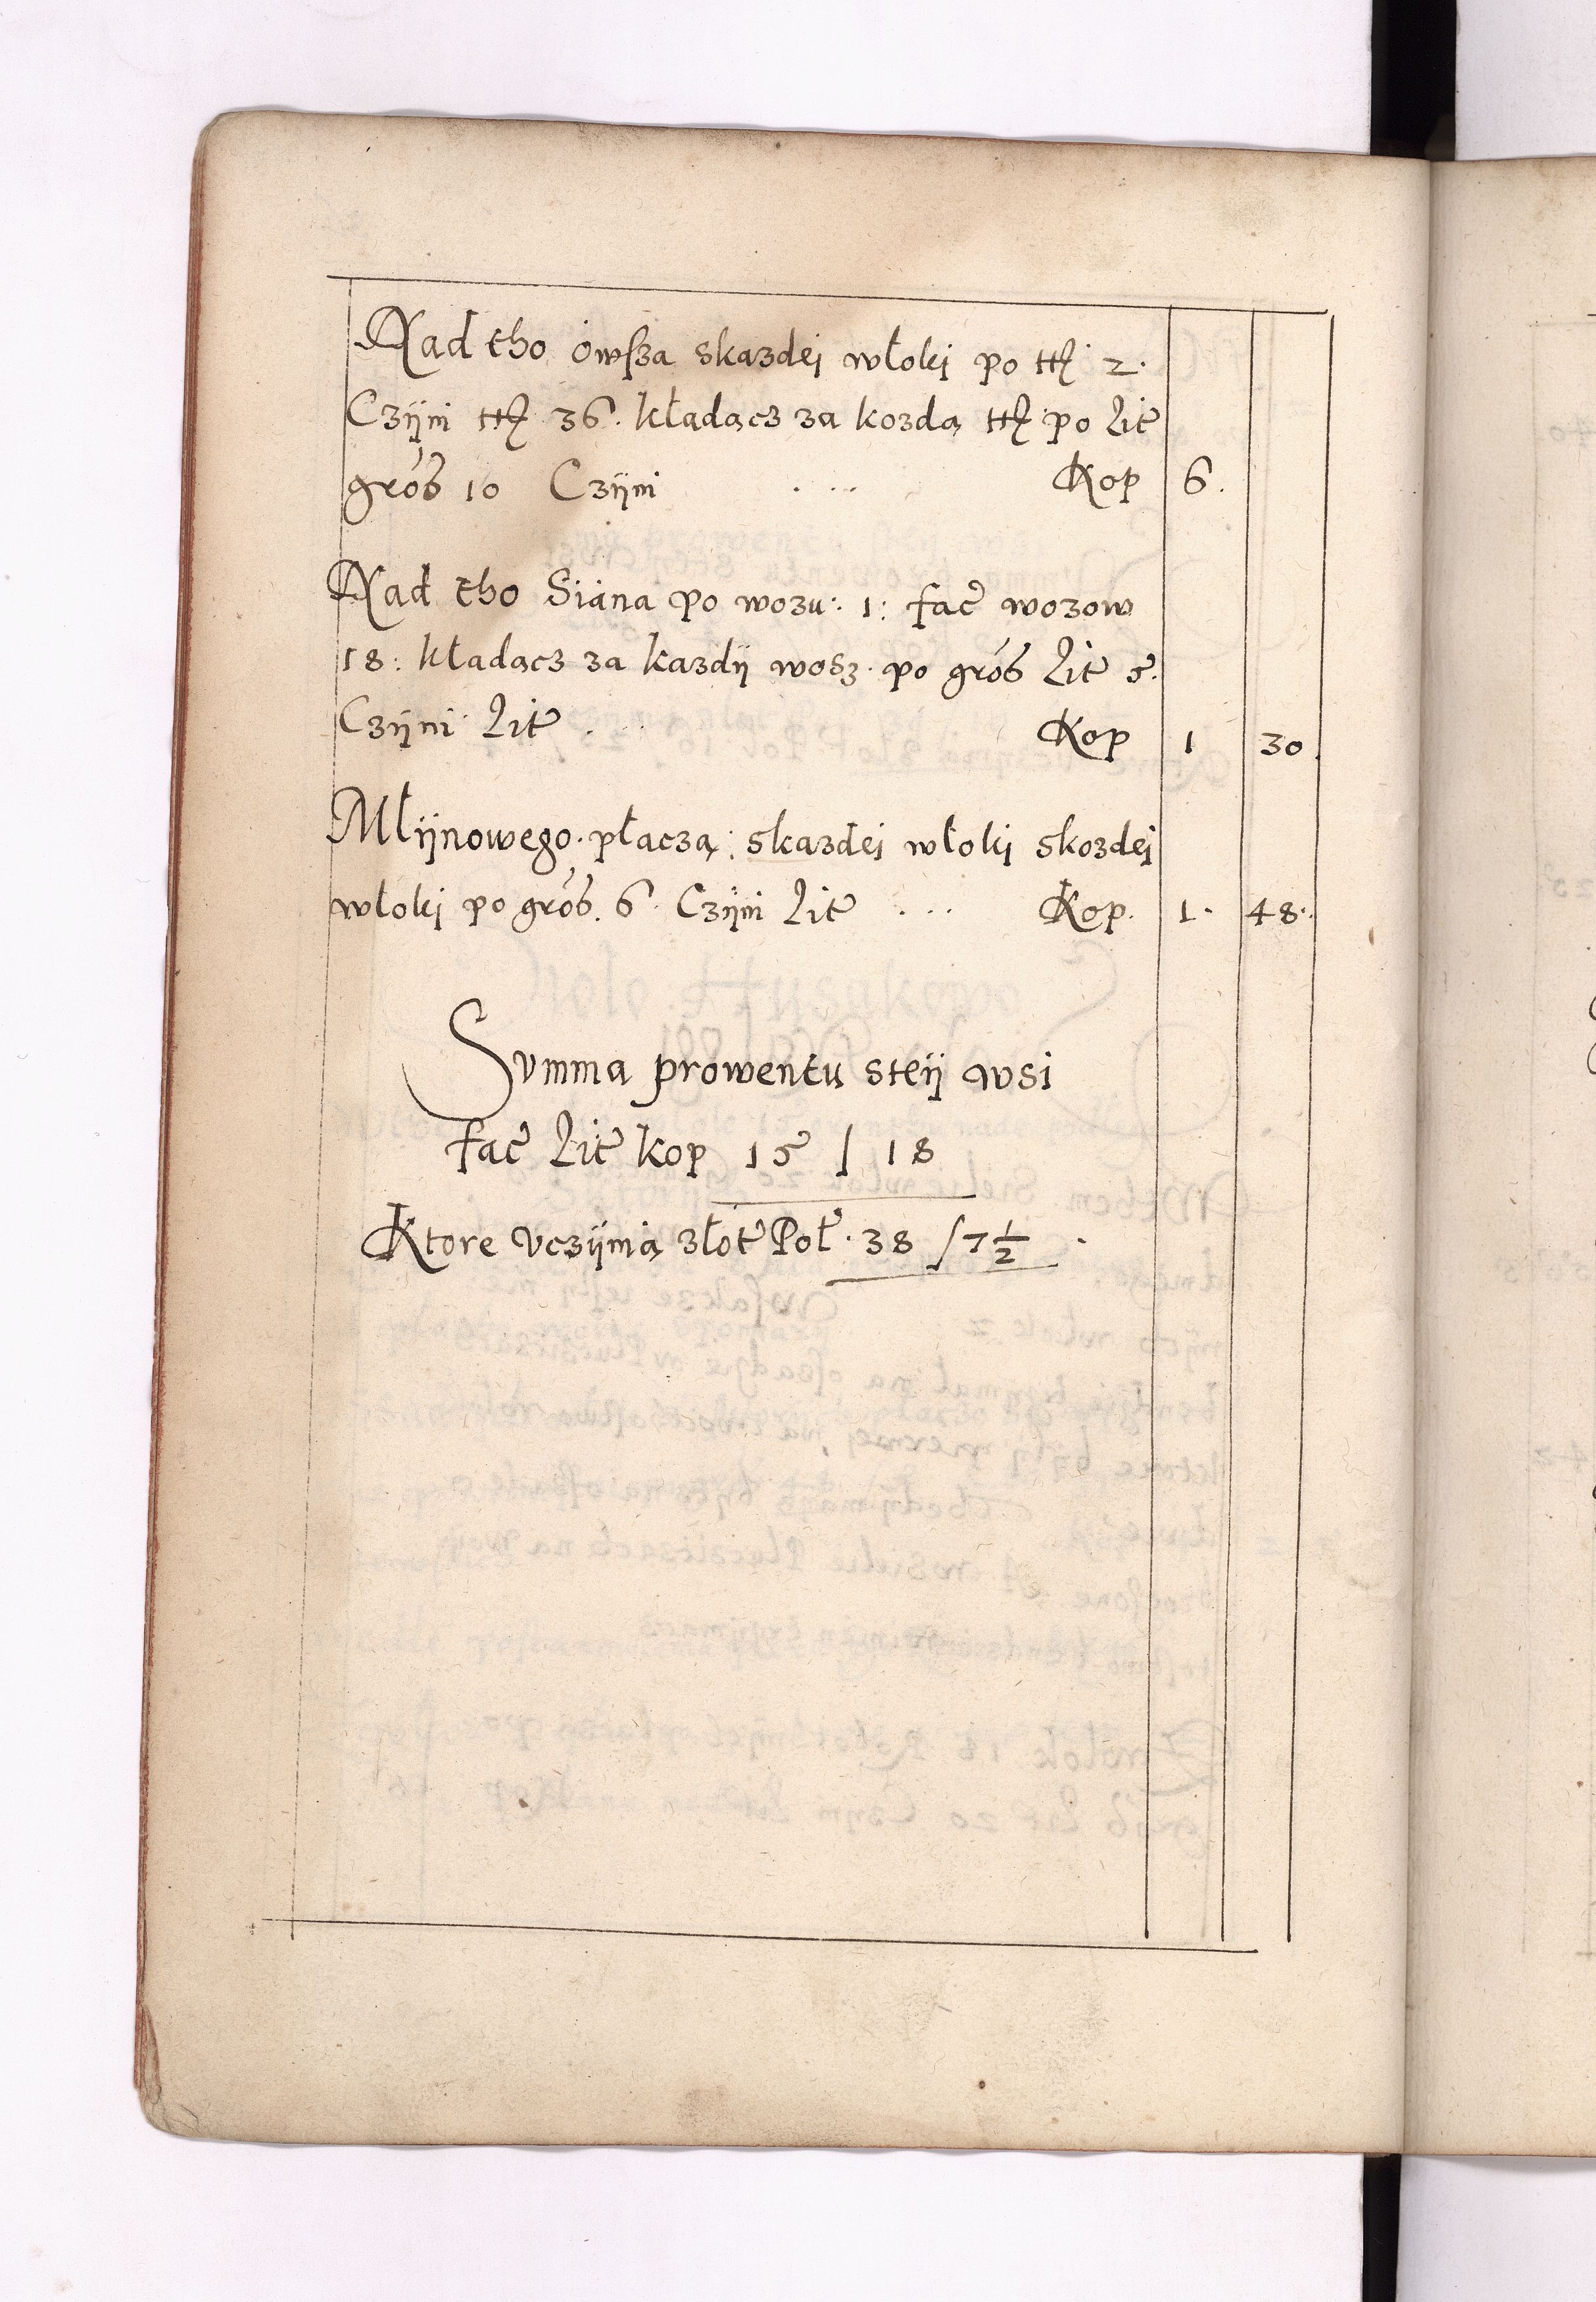 Nad tho owsza skazdei włoki po ttł 2.
Czÿni ttł 36. kładącz za kozdą ttł po lit
gros 10 Czÿni .... Kop 6.
Nad tho Siana po wozu: 1: fac wozow
18: kładącz za kazdÿ wosz. po gros Lit 5.
Czÿni Lit . . . Kop 1 30.
Młÿnowego. płaczą: skazdei włoki skozdei
włoki po gros. 6. Czÿni Lit .... Kop. 1. 48.
Summa prowentu steÿ wsi
fac Lit kop 15 / 18
Ktore vczÿnią złot Pol. 38 / 7 1/2